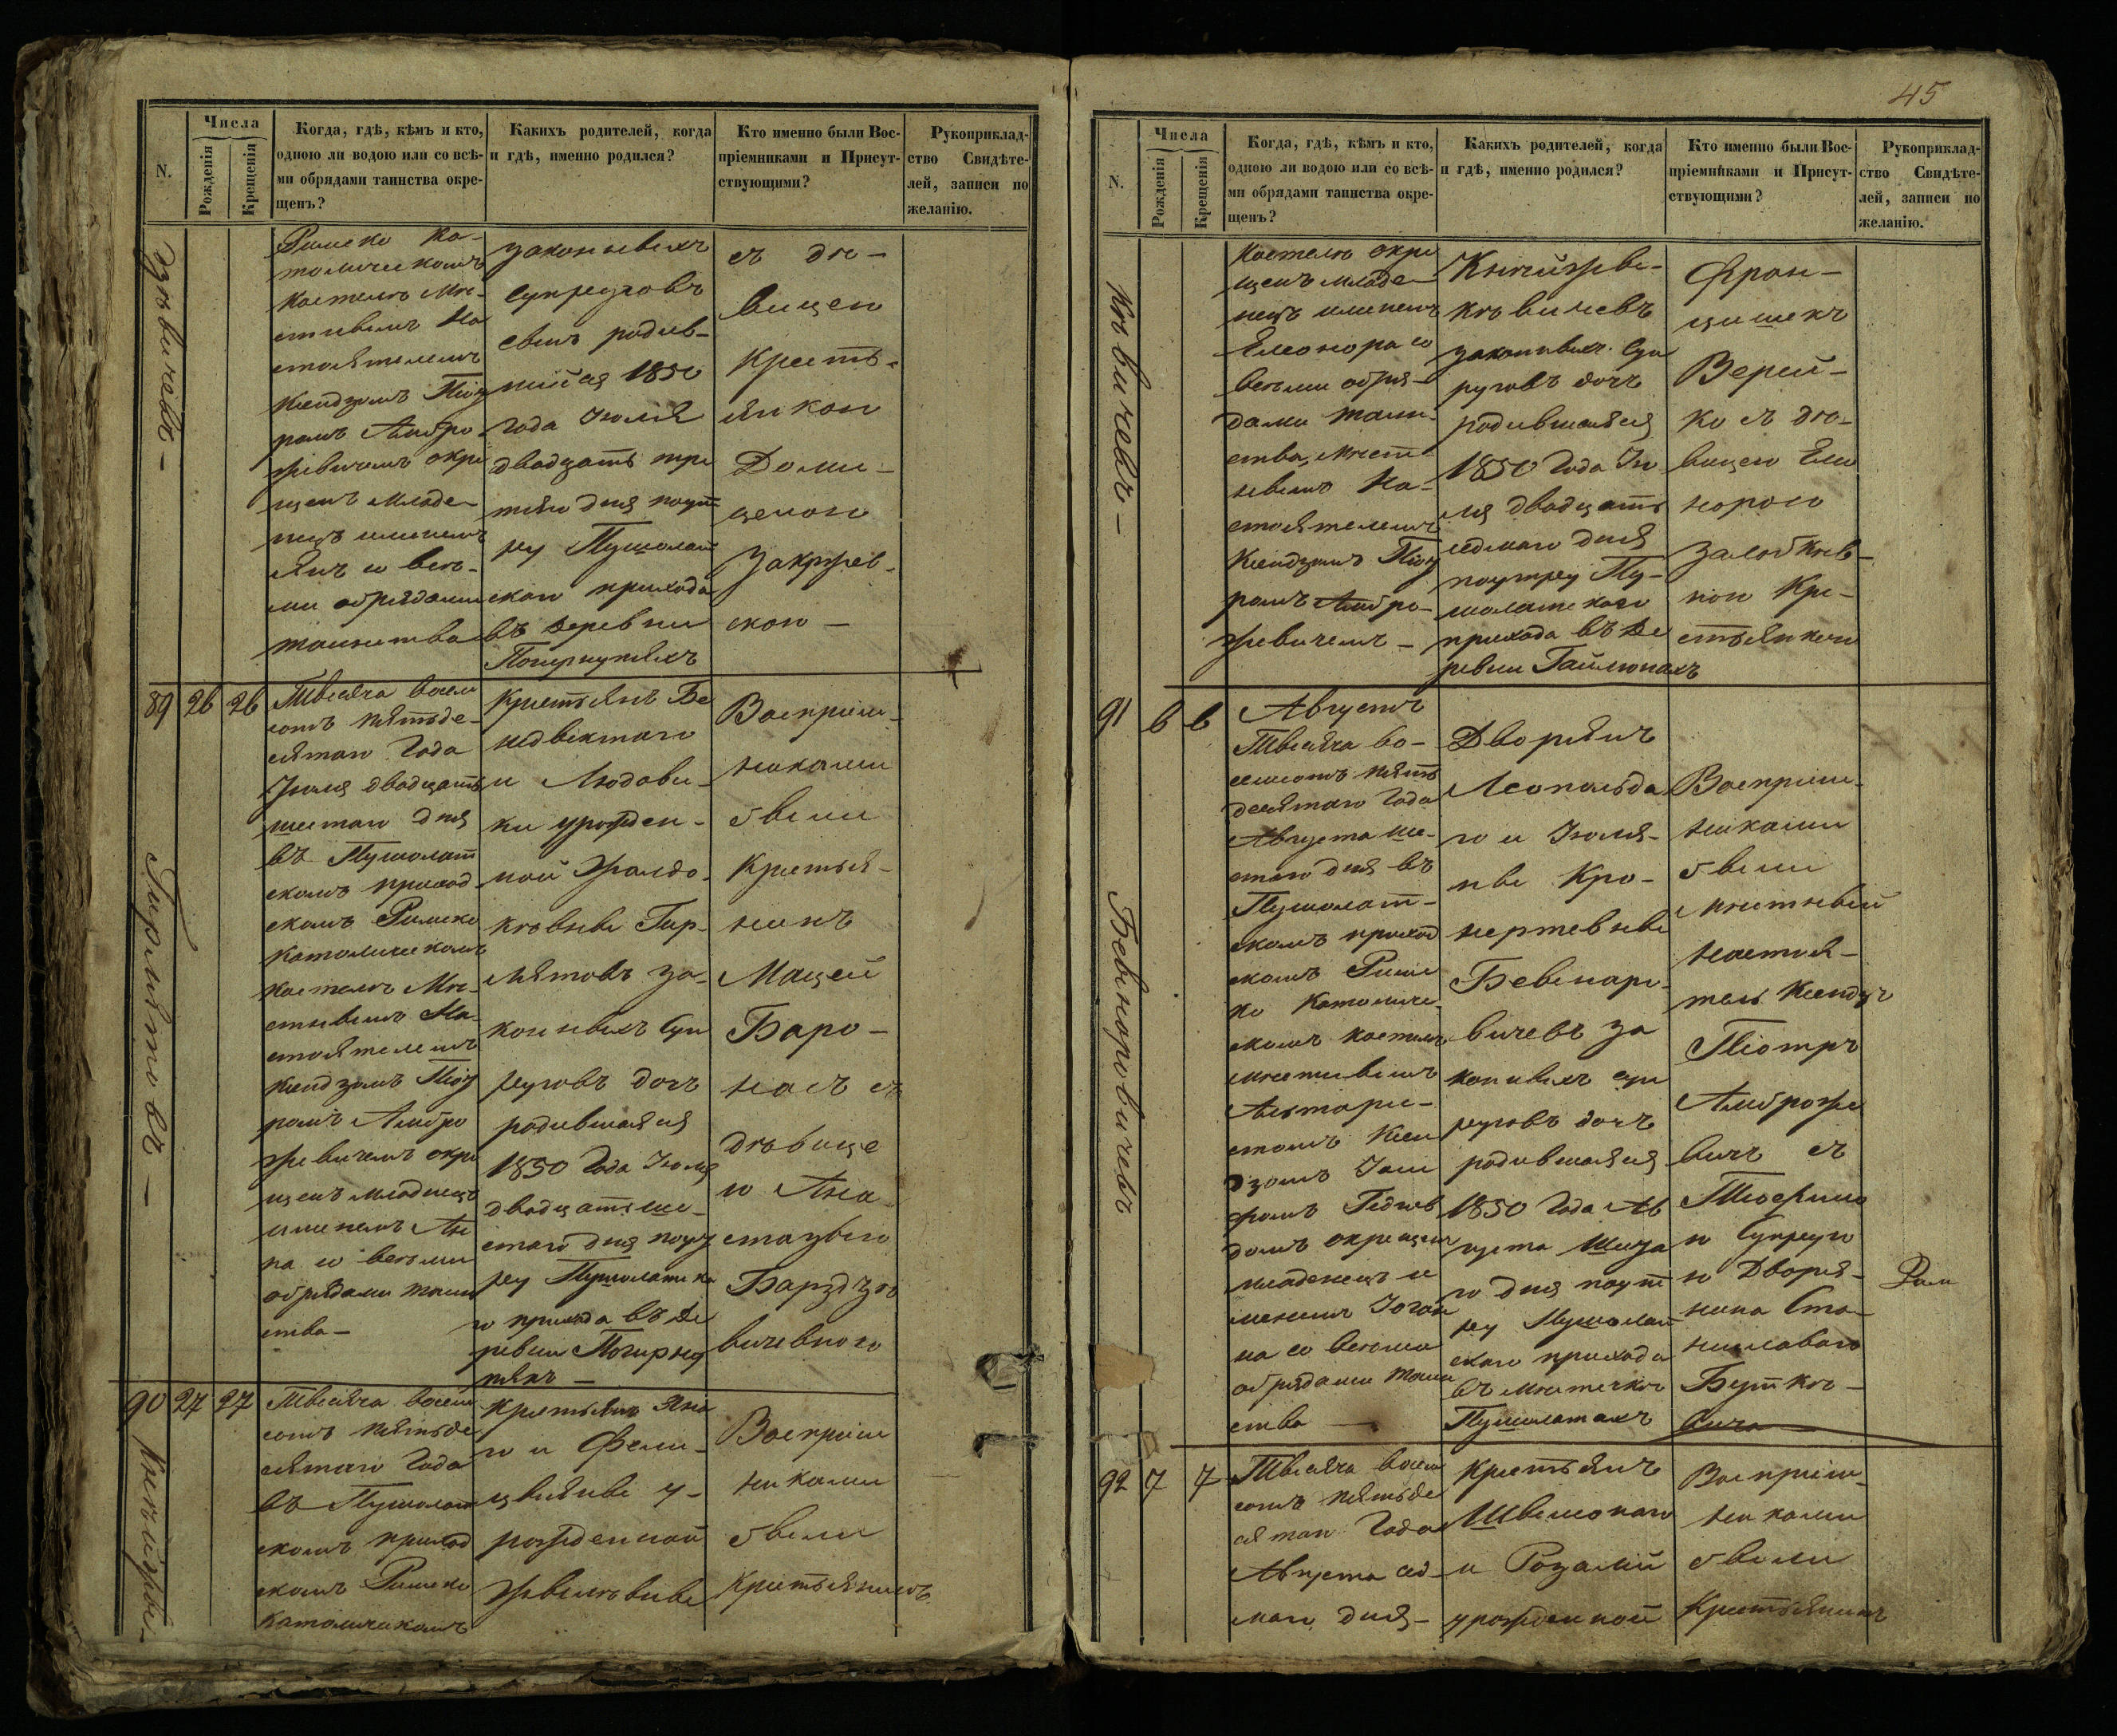 N.
Числа
Рожденія
Крещенія
Когда, гдѣ, кѣмъ и кто,
одною ли водою или со всѣ-
ми обрядами таинства окре-
щенъ?
Какихъ родителей, когда
и гдѣ, именно родился?
Кто именно были Вос-
пріемниками и Присут-
ствующими?
Рукоприклад-
ство Свидѣте-
лей, записи по
желанію.
Римско Ка-
толическомъ
костелѣ Мѣ-
стнымъ На
стоятелемъ
Ксендзомъ Піот
ромъ Амбро
жевичемъ окре
щенъ Младе-
нецъ именемъ
Янъ со всѣ-
ми обрядами
таинства
законныхъ
Супруговъ
сынъ родив-
шійся 1850
года Іюля
двадцать тре
тяго дня поут
ру Пушолат
скаго прихода
въ деревни
съ дѣ-
вицею
Кресть-
янкою
Доми-
целою
Закржев-
скою —
89 26 26
Тысяча восем
сотъ пятьде-
сятаго Года
Іюля двадцать
шестаго дня
въ Пушолат
скомъ приход
скомъ Римско
Католическомъ
костелѣ Мѣ-
стнымъ На-
стоятелемъ
Ксендзомъ Піот
ромъ Амбро
жевичемъ окре
щенъ младнецъ
именемъ Ан
на со всѣми
обрядами таин
ства —
Крестьянъ Бе
недыктаго
и Людови-
ки урожден-
ной
Гир-
лятовъ за-
конныхъ Суп
руговъ дочь
родившаяся
1850 Года Іюля
двадцать ше-
стаго дня поут
ру Пушолатска
го прихода въ де
ревни
Воспріем-
никами
были
Крестья-
нинъ
Мацей
Баро-
насъ съ
дѣвице
ю Ана
стазыею
вичевною
90 27 27
Тысяча восем
сотъ пятьде
сятаго Года
въ Пушолат
скомъ приход
скомъ Римско
Католическомъ
Крестьянъ Яна
го и Фели-
цыяны у-
рожденной
Воспріем
никами
были
Крестьянинъ
Гирлятовъ —
45
N.
Числа
Рожденія
Крещенія
Когда, гдѣ, кѣмъ и кто,
одною ли водою или со всѣ-
ми обрядами таинства окре-
щенъ?
Какихъ родителей, когда
и гдѣ, именно родился?
Кто именно были Вос-
пріемниками и Присут-
ствующими?
Рукоприклад-
ство Свидѣте-
лей, записи по
желанію.
костелѣ окре
щенъ Младе-
нецъ именемъ
Елеонора со
всѣми обря-
дами таин-
ства, Мѣст-
нымъ На-
стоятелемъ
Ксендзомъ Піот
ромъ Амбро-
жевичемъ —
законныхъ Суп
руговъ дочь
родившаяся
1850 Года Ію
ля двадцать
седмаго дня
поутру Пу-
шолатскаго
прихода въ де
ревни Гайлюнахъ
Фран-
цишекъ
Верей-
ко съ дѣ-
вицею Елео
норою
Кре-
стьянкою
91 6 6
Августъ
Тысяча во-
семсотъ пять
десятаго Года
Августа ше-
стаго дня въ
Пушолат-
скомъ приход
скомъ Римс
ко Католиче-
скомъ костелѣ
мѣстнымъ
Альтари-
стомъ Ксен
дзомъ
домъ окрещенъ
младенецъ и
менемъ Іоган
на со всѣми
обрядами таин
ства —
Дворянъ
Леопольда
го и Юлія-
ны Кро-
нертевны
за
конныхъ суп
руговъ дочь
родившаяся
1850 Года Ав
густа шеста
го дня поут
ру Пушолат
скаго прихода
въ мѣстечкѣ
Пушолатахъ
Воспріем-
никами
были
Мѣстный
Настоя-
тель Ксендзъ
Піотръ
Амброже
вичъ съ
Теофило
ю Супруго
ю Дворя-
нина Ста-
ниславаго
Бутке-
вича
92 7 7
Тысяча восем
сотъ пятьде
сятаго Года
Августа сед-
маго дня —
Крестьянъ
Шымонаго
и Розаліи
урожденной
Воспріем-
никами
были
Крестьянинъ